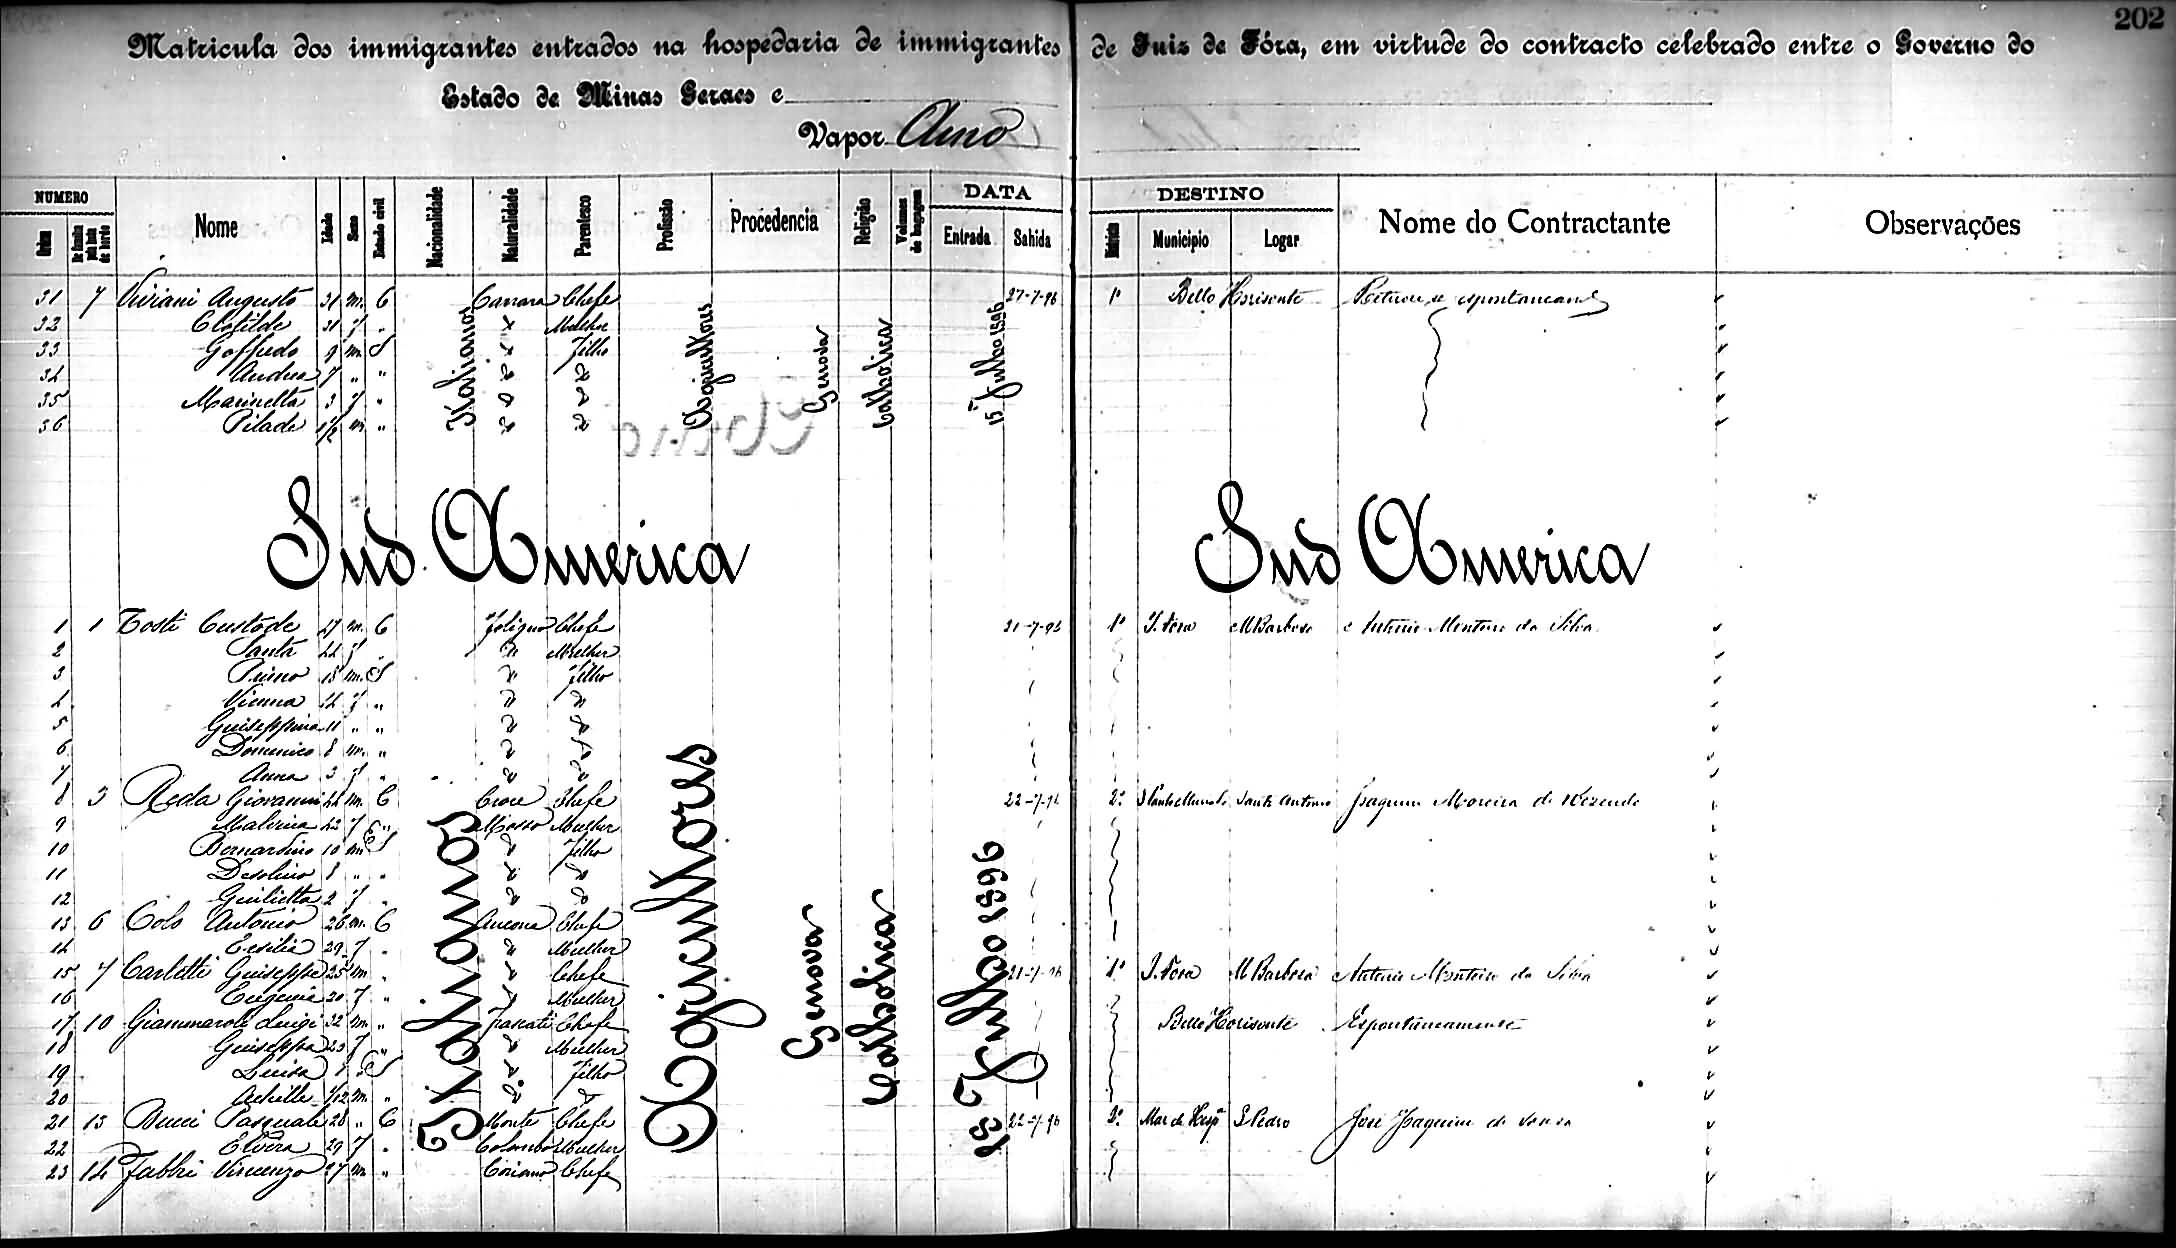 202
Matricula dos immigrantes entrados na hospedaria de immigrantes de Juiz de Fóra, em virtude do contracto celebrado entre o Governo do
Estado de Minas Geraes e
Vapor Arno
NUMERO DATA DESTINO
Ordem Nome Idade Sexo Estado civil Nacionalidade Naturalidade Parentesco Profissão Procedencia Religião Volumes de bagagem Entrada Sahida Municipio Logar Nome do Contractante Observações
31 7 Viviani Augusto 31 m. C Carrara Chefe 27-7-96 1ª Bello Horisonte
32 Clotilde 31 f " " Mulher
33 Goffredo 9 m. S " Filho
34 Andrea 7 " " " "
35 Marinella 3 f " " "
36 Pilade 1/2 m " " "
Italianos Agricultores Genova Catholica 15 Julho 1896
Sud America Sud America
1 1 Tosti Custode 47 m. C Foligno Chefe 21-7-96 1ª J. Fora M Barbosa Antonio Monteiro da Silva
2 Santa 44 f " Mulher
3 Primo 18 m. S " Filho
4 Vienna 14 f " " "
5 Guiseppina 11 " " " "
6 Domenico 8 m. " " "
7 Anna 3 f " " "
8 3 Reda Giovanni 44 m. C Croce Chefe 22-7-96 2ª Santo Antonio Joaquim Moreira de Rezende
9 Malvina 42 f " Mosso Mulher
10 Bernardino 10 m S " Filho
11 Desolino 8 " " " "
12 Guilietta 2 f " " "
13 6 Colo Antonio 26 m. C Ancona Chefe
14 Ersilia 29 f " " Mulher
15 7 Carletti Guiseppe 25 m " " Chefe 21-7-96 1ª J. Fora M Barbosa Antonio Monteiro da Silva
16 Eugenia 20 f " " Mulher
17 10 Giammaroli Luigi 32 m " Frascati Chefe Bello Horisonte Espontaneamente
18 Guiseppa 23 f " " Mulher
19 Luisa S " Filho
20 Achille 1/12 m. " " "
21 13 Bucci Pasquale 28 " C Monte Chefe 22-7-96 2ª Mar de Hespª S. Pedro José Joaquim de Souza
22 Elvira 29 f " Colombo Mulher
23 14 Fabbri Vincenzo 27 m " Coriano Chefe
Italianos Agricultores Genova Catholica 18 Julho 1896